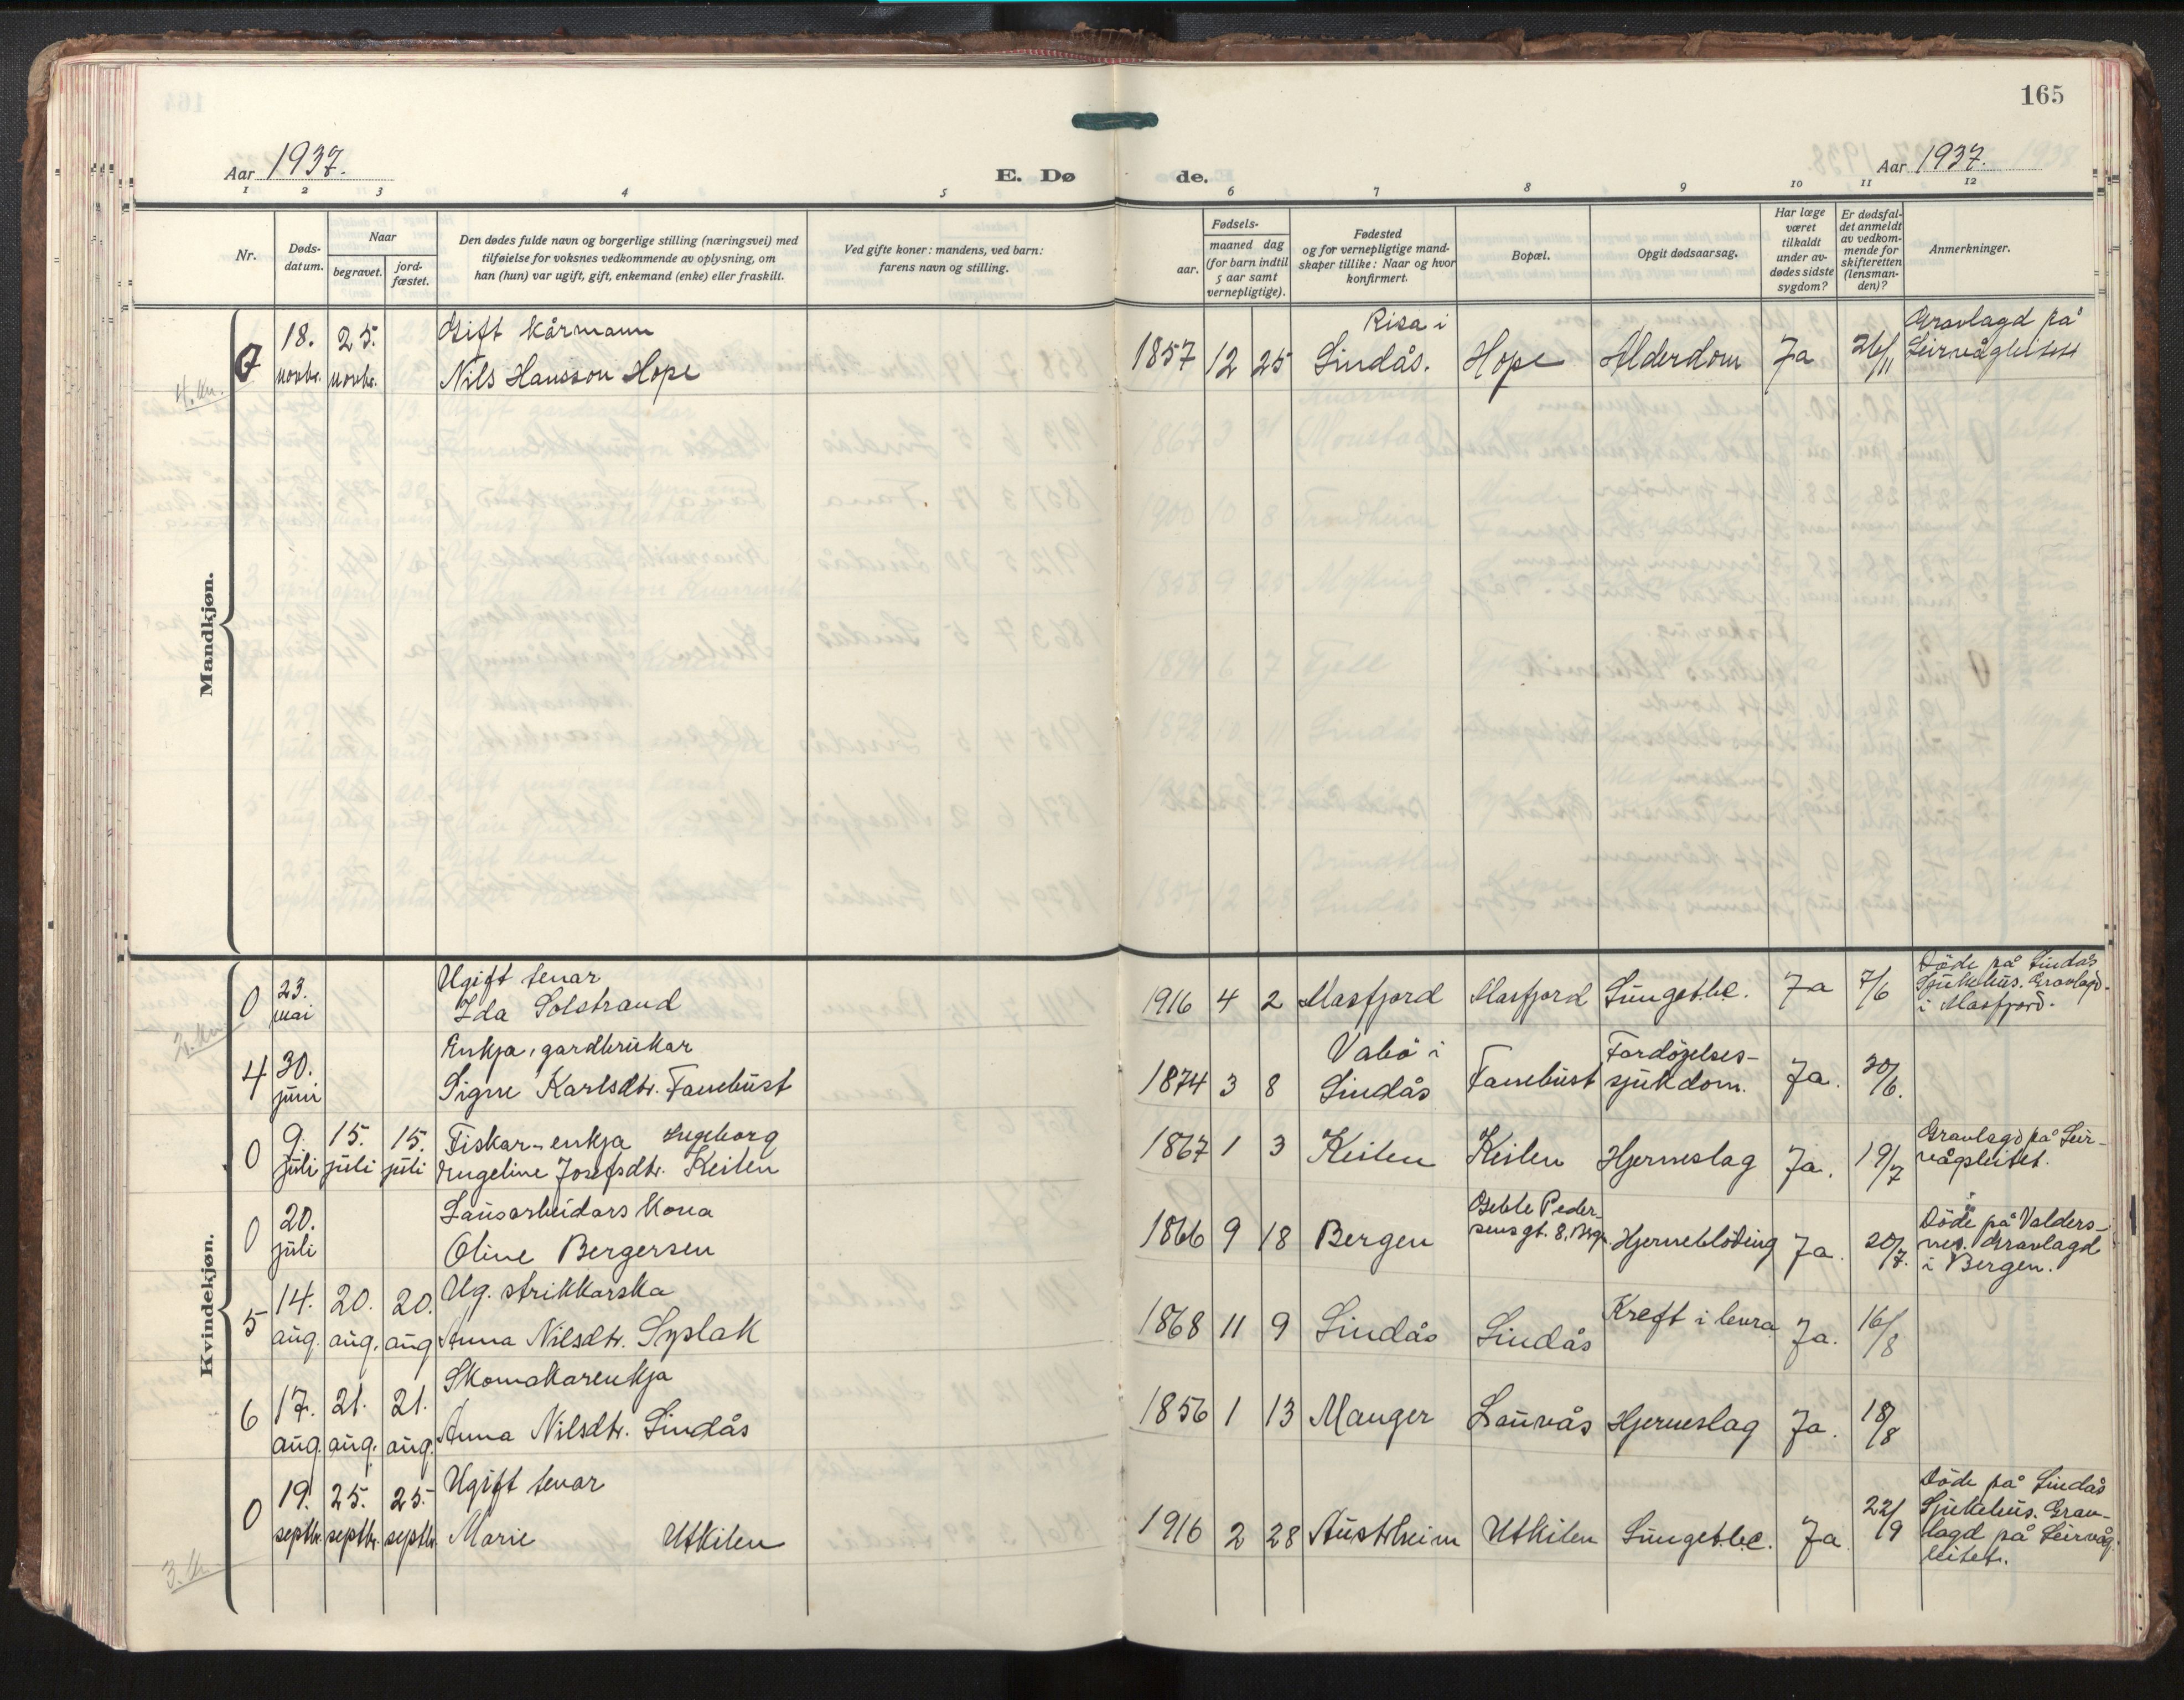 165
Aar 1937.
E. Dø
de.
Aar 1937.
1 2 3 4 5 6 7 8 9 10 11 12
Nr.
Døds-
datum.
Naar
begravet.
jord-
fæstet.
Den dødes fulde navn og borgerlige stilling (næringsvei) med
tilføielse for voksnes vedkommende av oplysning, om
han (hun) var ugift, gift, enkemand (enke) eller fraskilt.
Ved gifte koner: mandens, ved barn:
farens navn og stilling.
Fødsels-
aar.
maaned dag
(for barn indtil
5 aar samt
vernepligtige).
Fødested
og for vernepligtige mand-
skaper tillike: Naar og hvor
konfirmert.
Bopæl.
Opgit dødsaarsag.
Har læge
været
tilkaldt
under av-
dødes sidste
sygdom?
Er dødsfal-
det anmeldt
av vedkom-
mende for
skifteretten
(lensman-
den)?
Anmerkninger.
Mandkjøn.
18. novbr. 25. novbr.
Gift kårmann
Nils Hansson Hope
1857 12 25
Risa i
Lindås.
Hope
Alderdom
Ja
26/11
Gravlagd på
Leirvågleitet
4. kv.
Kvindekjøn.
0
23. mai
Ugift tenar
Ida Solstrand
1916 4 2
Masfjord
Masfjord
Lungetbc.
Ja
7/6
Döde på Lindås
Sjukehus. Gravlagd
i Masfjord.
2. kv.
4
30. juni
Enkja, gardbrukar
Signe Karlsdtr. Fanebust
1874 3 8
Vabö i
Lindås
Fanebust
Fordöyelses-
sjukdom.
Ja.
30/6.
0
9. juli 15. juli 15. juli
Fiskar-enkja Ingeborg
Engeline Josefsdtr. Keilen
1867 1 3
Keilen
Keilen
Hjerneslag
Ja.
19/7
Gravlagd på Leir-
vågsleitet.
0
20. juli
Lausarbeidars kona
Oline Bergersen
1866 9 18
Bergen
Geble Peder-
sensgt. 8, Brgn.
Hjerneblöding
Ja.
20/7.
Döde på Valders-
nes. Gravlagd
i Bergen.
5
14. aug. 20. aug. 20. aug
Ug. strikkarska
Anna Nilsdtr. Syslak
1868 11 9
Lindås
Lindås
Kreft i levra
Ja.
16/8
6
17. aug. 21. aug. 21. aug.
Skomakarenkja
Anna Nilsdtr. Lindås
1856 1 13
Manger
Lauvås
Hjerneslag
Ja.
18/8
0
19. septbr. 25. septbr. 25. septbr.
Ugift tenar
Marie Utkilen
1916 2 28
Austrheim
Utkilen
Lungetbc.
Ja.
22/9
Döde på Lindås
Sjukehus. Grav-
lagd på Leirvåg-
leitet.
3. kv.